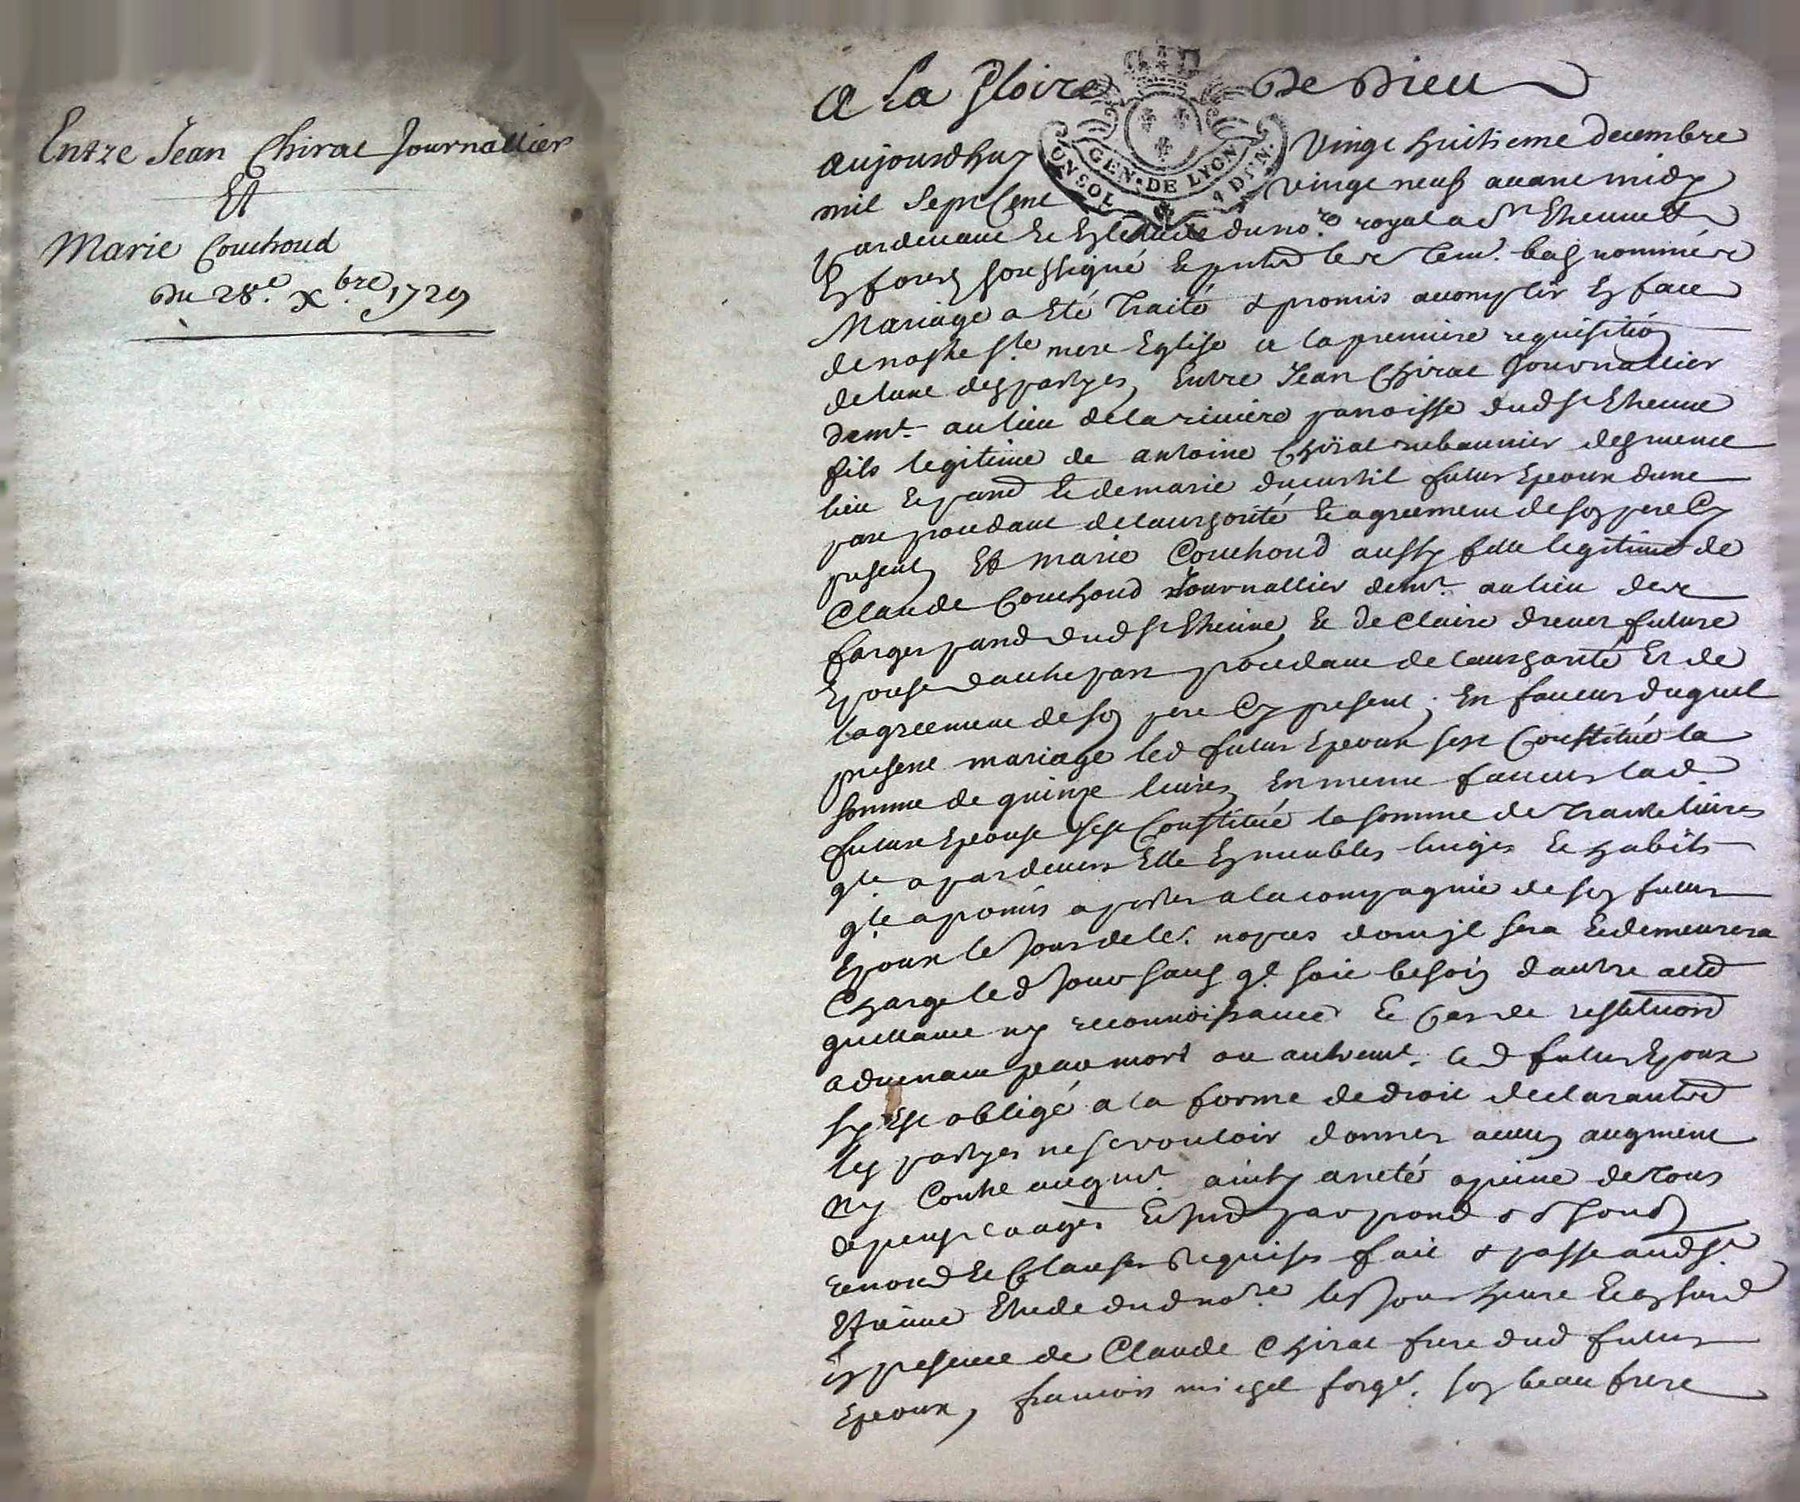 Entre Jean Chirat Journallier
Et
Marie Couchoud
Du 28.e Xbre. 1729
A La Gloire De Dieu
GEN. DE LYON
aujourdhuy Vingt huitieme decembre
mil Sept Cent Vingt neuf avant midy
pardevant Le no.re royal a St Etienne
En forez soussigné & temt. bas nommées
Mariage a Eté Traité & promis accomplir En face
de nostre Ste. mere Eglise a la premiere requisition
de lune des partyes, Entre Jean Chirat Journallier
demt. au lieu de la riviere parroisse dud St Etienne
fils legitime de antoine Chirat rubannier des meme
lieu et parred Et de marie ducurtil futur Epoux dune
part procedant de lauthorité Et agreement de son pere Cy
present Et marie Couchoud aussy fille legitime de
Claude Couchoud Journallier demt. au lieu des
forges parred dud St Etienne, Et de Claire future
Epouse dautre part procedant de lauthorité Et de
lagreement de son pere Cy present. En faveur duquel
present mariage led futur Epoux sest Constitué la
somme de quinze livres, En meme faveur lad
future Epouse sest Constitué la somme de Trante livres
qle. a pardevers Elle En meubles linges Et habits
qle. a promis aporter a la compagnie de son futur
Epoux le Jour de les. nopces dont jl sera Et demeurera
Charge led Jour sans ql. soit besoin dautre acte
quittance ny reconnoissance Et Cas de restitution
advenant par mort ou autremt. led futur Epoux
sy Est obligé a la forme de droit declarant
les partyes ne se vouloir donner aucun augment
ny Contre augmt. ainsy arreté a peine de tous
depens Et
renond Et Clauses Requises fait & passe aud St
Etienne Etude dud no.re les Jour heure Et an susd
En presence de Claude Chirat frere dud futur
Epoux, francois michel forgr. son beau frere